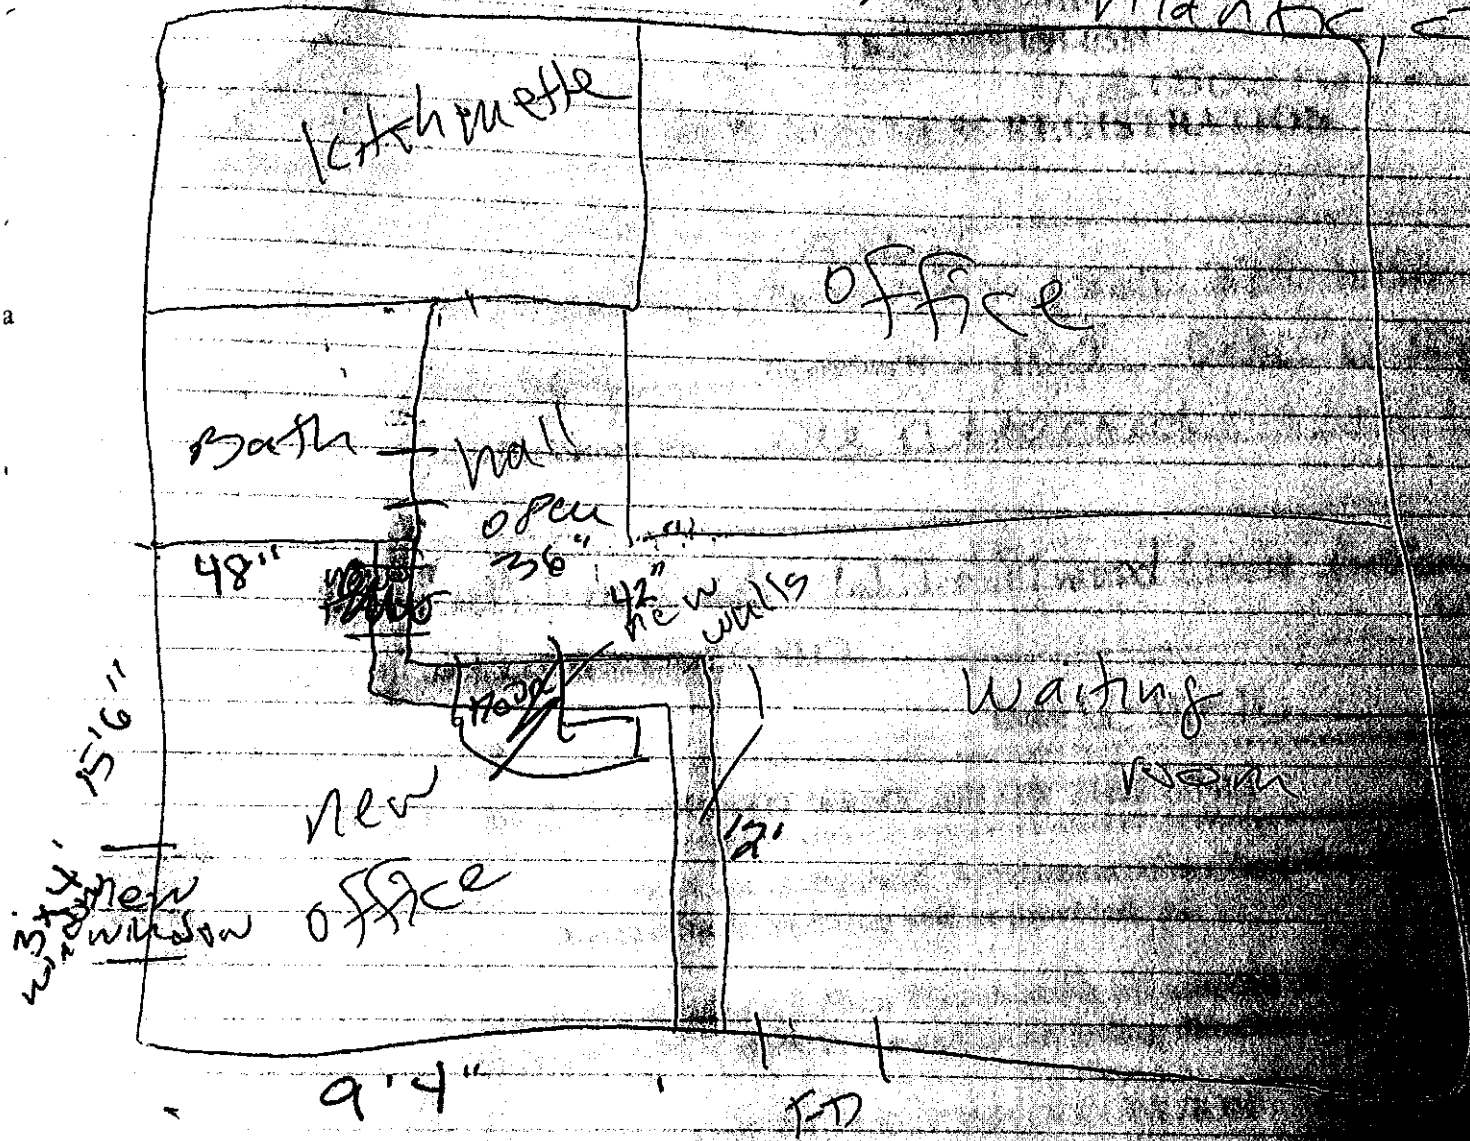 Kitchinette
office
Bath
hall
open
36"
48"
42"
new
walls
Door
Waiting
room
15'6"
new
office
12'
3x4'
window
new
window
9'4"
F-D